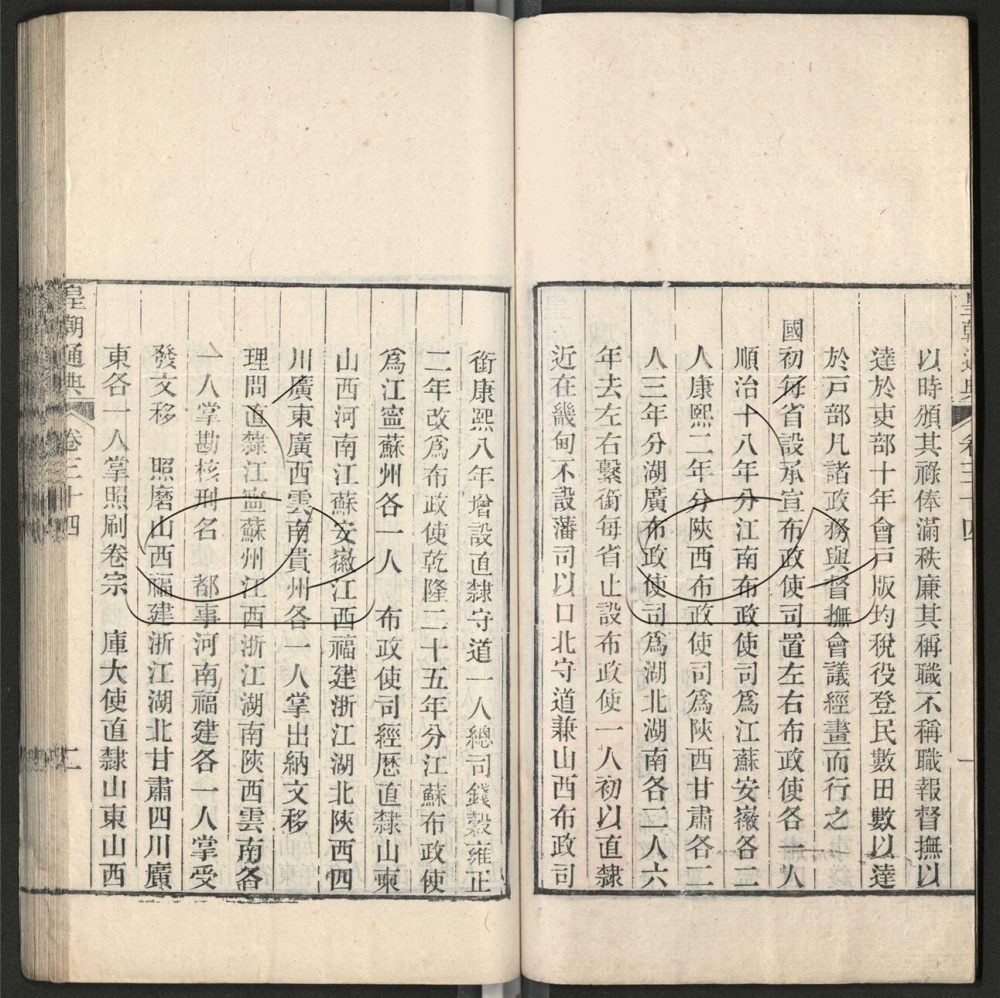 皇朝通典 卷三十四 一
以時頒其祿俸滿秩廉其稱職不稱職報督撫以
達於吏部十年會戶版均稅役登民數田數以達
於戶部凡諸政務與督撫會議經畫而行之
國初每省設承宣布政使司置左右布政使各一人
順治十八年分江南布政使司爲江蘇安徽各二
人康熙二年分陝西布政使司爲陝西甘肅各二
人三年分湖廣布政使司爲湖北湖南各二人六
年去左右繫銜每省止設布政使一人初以直隸
近在畿甸不設藩司以口北守道兼山西布政司
銜康熙八年增設直隸守道一人總司錢穀雍正
二年改爲布政使乾隆二十五年分江蘇布政使
爲江寧蘇州各一人 布政使司經歷直隸山東
山西河南江蘇安徽江西福建浙江湖北陝西四
川廣東廣西雲南貴州各一人掌出納文移
理問直隸江寧蘇州江西浙江湖南陝西雲南各
一人掌勘核刑名 都事河南福建各一人掌受
發文移 照磨山西福建浙江湖北甘肅四川廣
東各一人掌照刷卷宗 庫大使直隸山東山西
皇朝通典 卷三十四